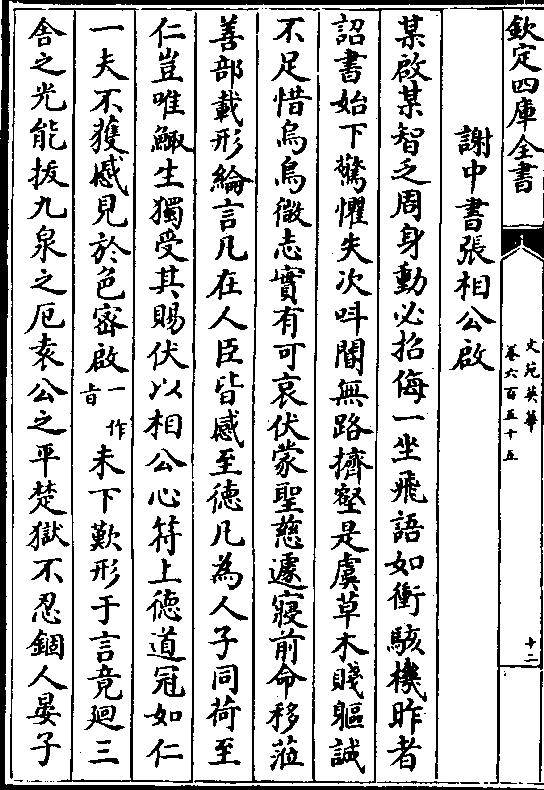 欽定四庫全書
文苑英華
卷六百五十五
十二
謝中書張相公啟
某啟某智乏周身動必招侮一坐飛語如衝駭機昨者
詔書始下驚懼失次呌閽無路擠壑是虞草木賤軀誠
不足惜烏鳥微志實有可哀伏蒙聖慈遽寢前命移蒞
善部載形綸言凡在人臣皆感至德凡為人子同荷至
仁豈唯鯫生獨受其賜伏以相公心符上德道冠如仁
一夫不獲感見於色密啟一作旨未下歎形于言竟廻三
舍之光能拔九泉之厄袁公之平楚獄不忍錮人晏子